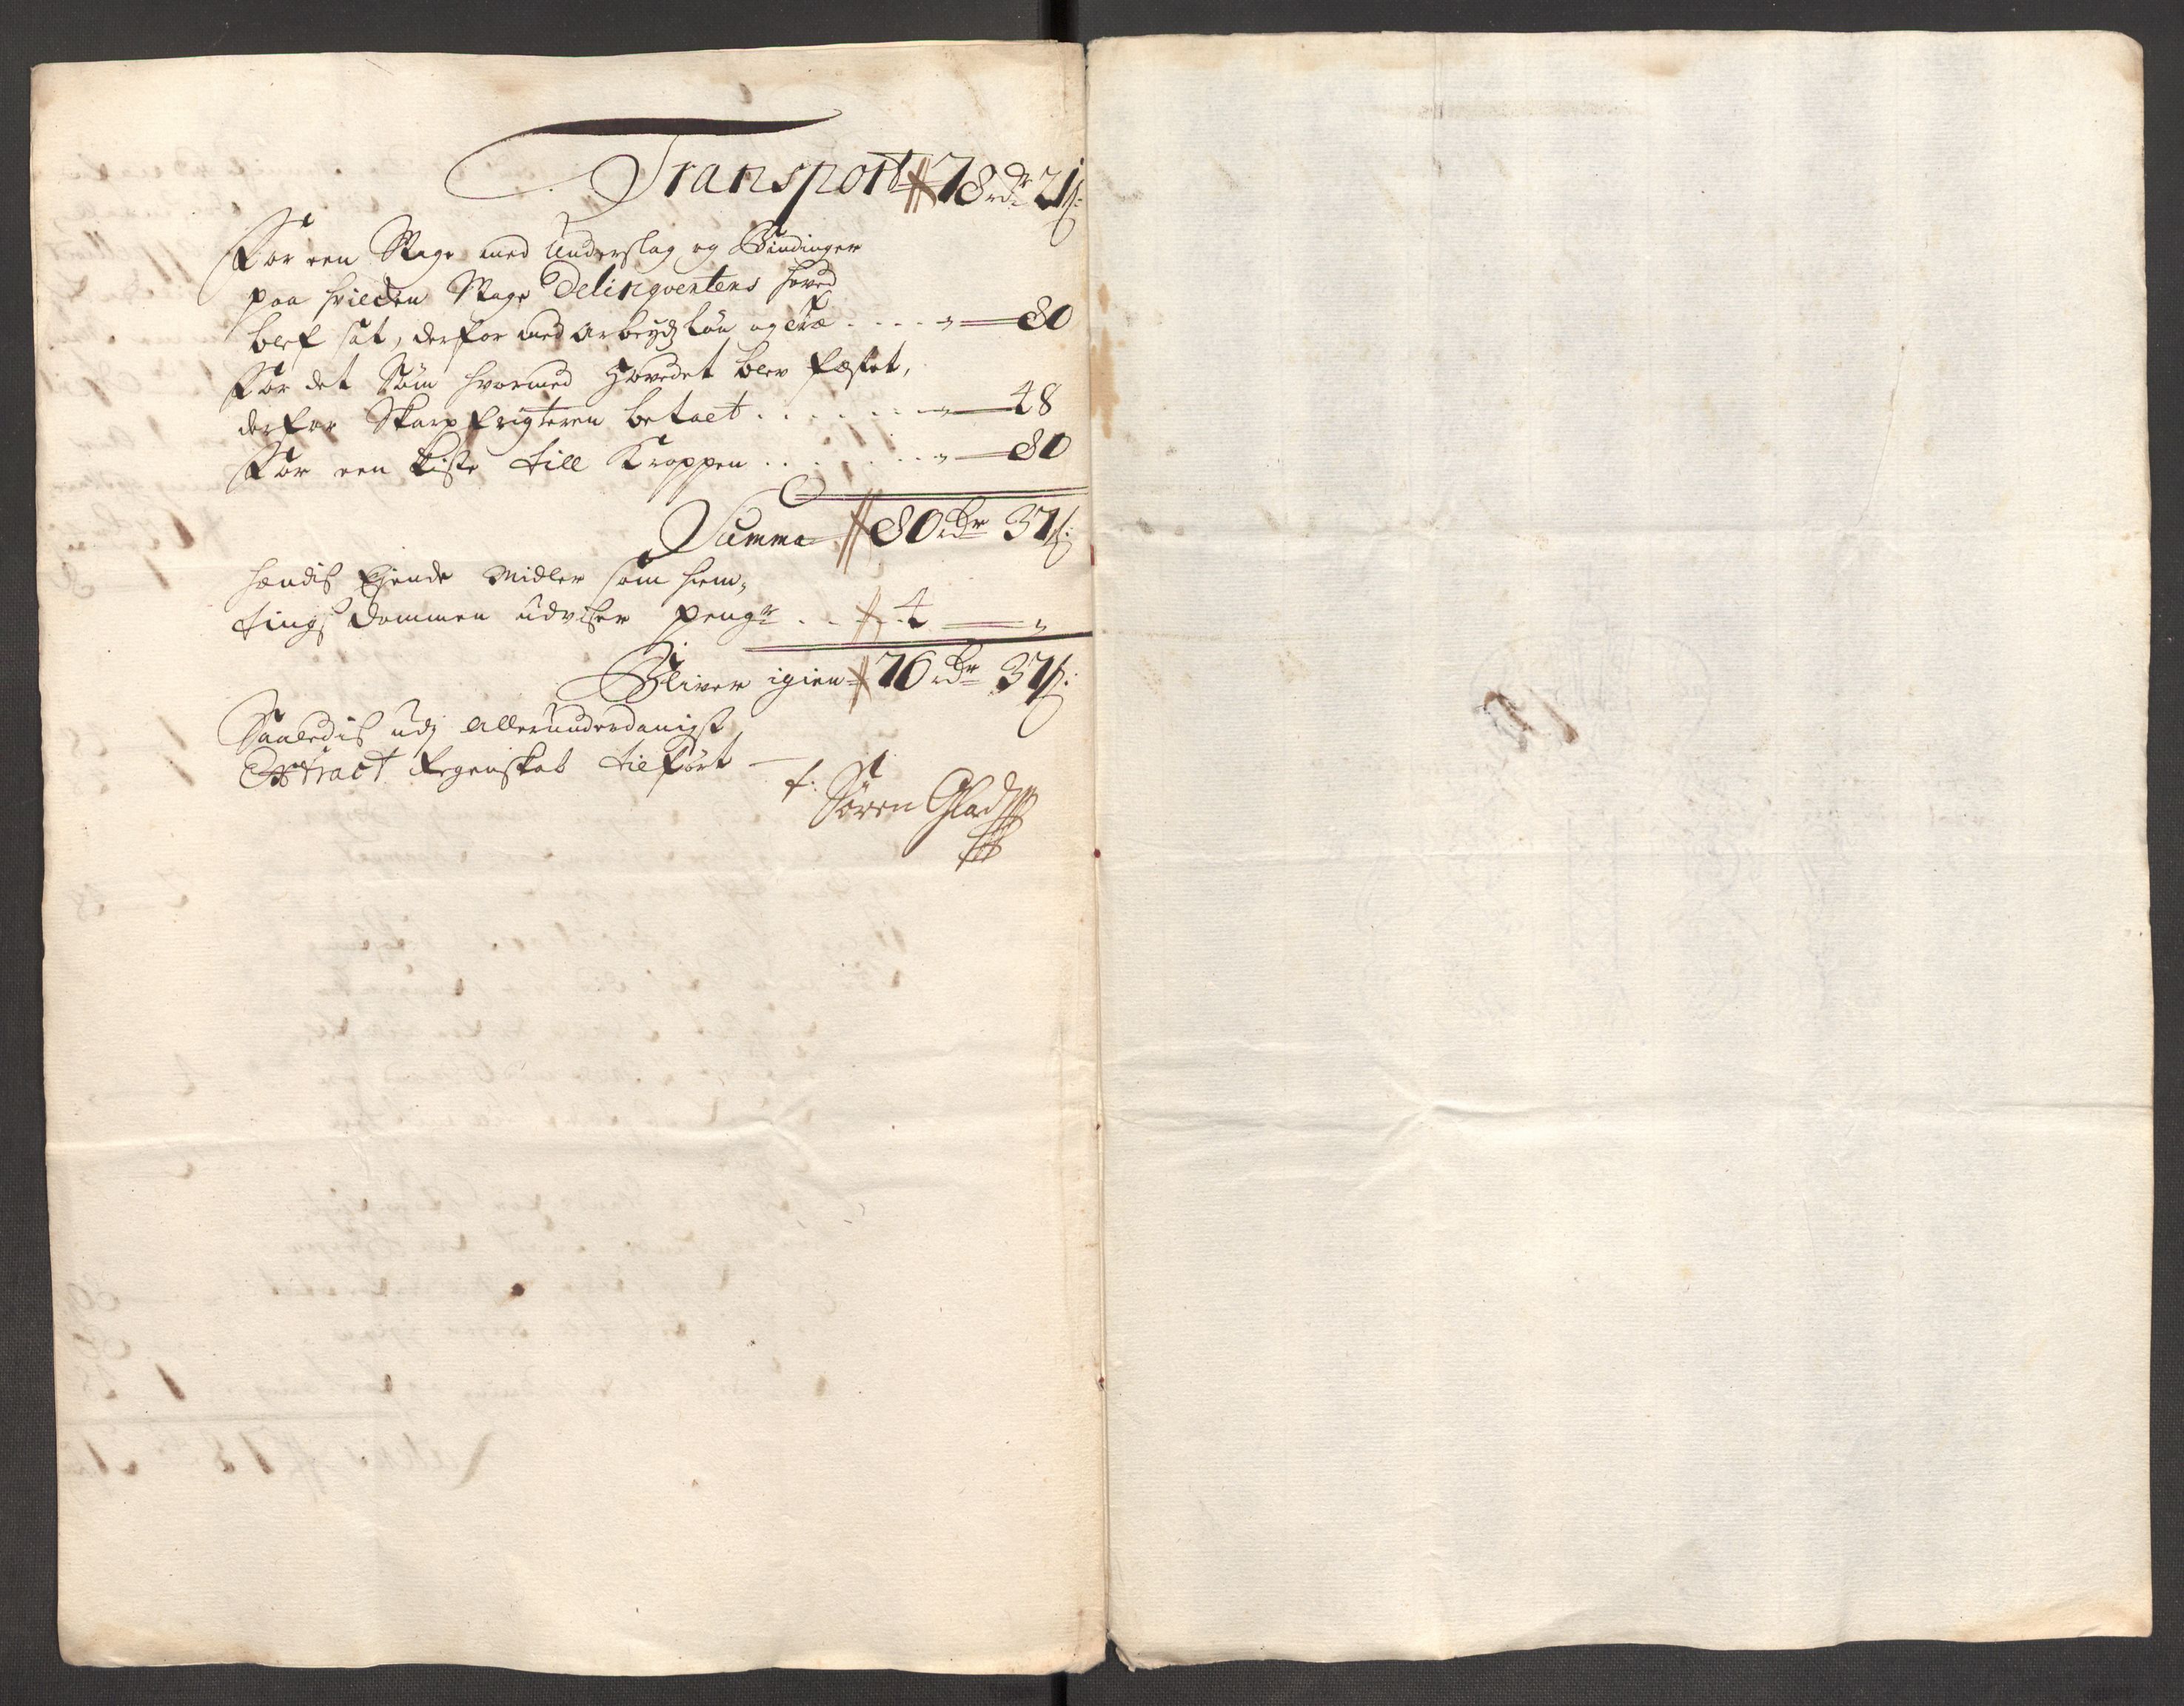 Transport 78 rdr 21 ß:
For een Stage med Underslag og Bindinger
paa hvilcken Stage Delinqventens hoved
blef sat, derfor med arbeydsløn og træ . . . . " — 80
For det Søm hvormed Hovedet blev fæstet,
derfor Skarpfrigteren betalt . . . . . . . " — 48
For een Kiste till Kroppen . . . . . . " — 80
Summa 80 rdr 37 ß:
hendis Ejende Midler som hiem,
tings dommen udviser penge . . 4 — "
Bliver igien 76 rdr 37 ß:
Saaledis udj allerunderdanigst
Extract Regenskab tilført —
f: Søren Glad